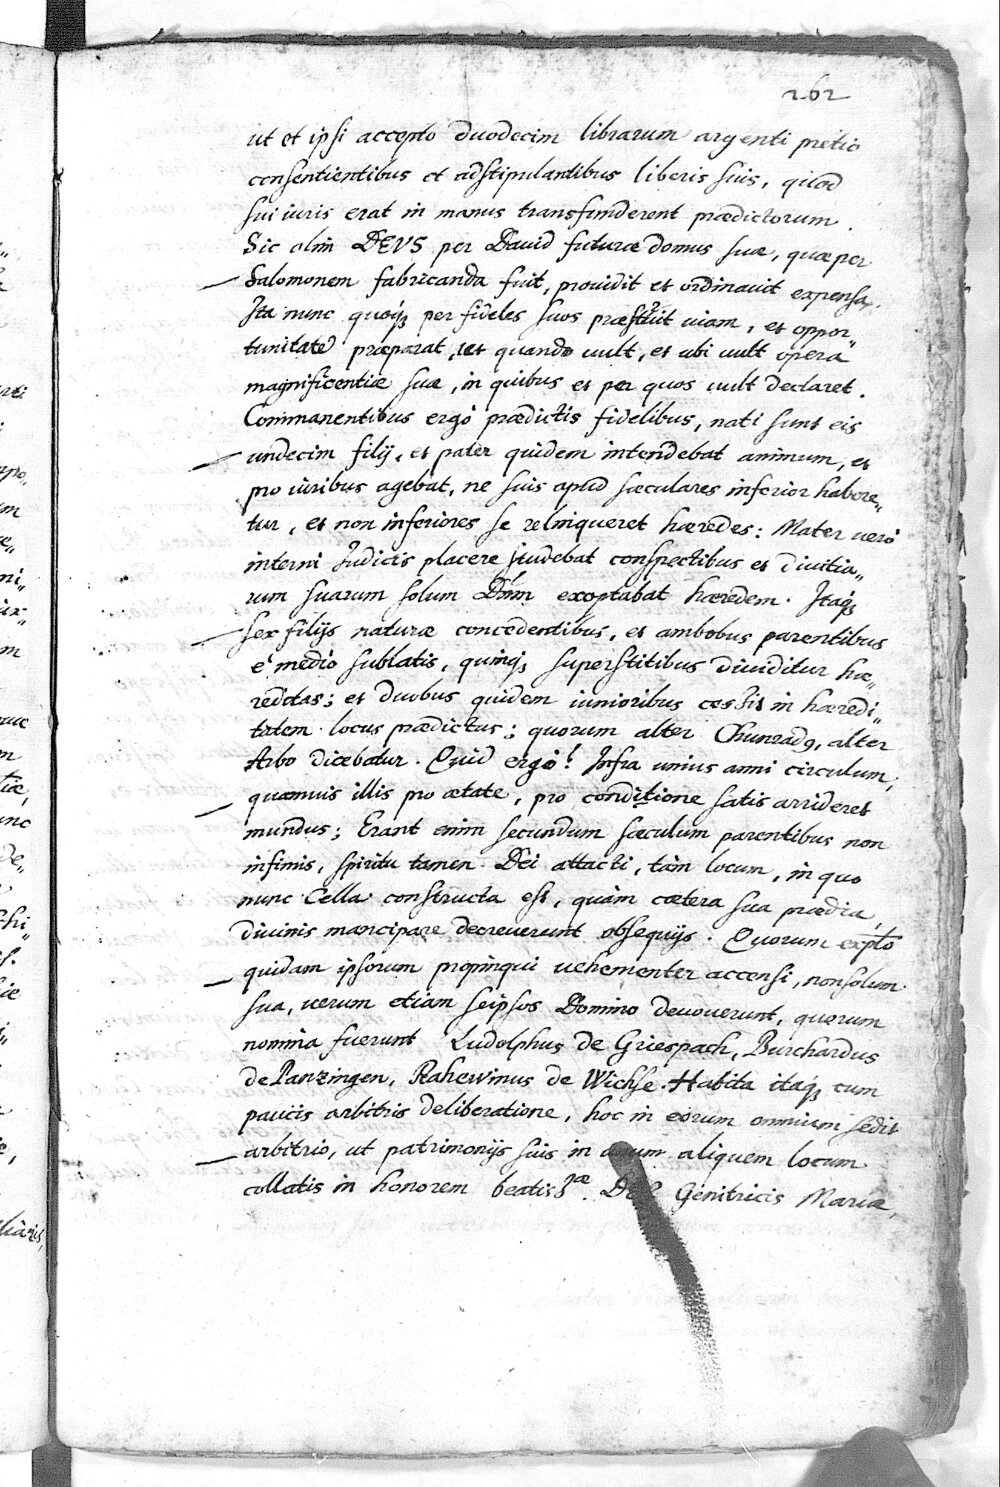 262
ut et ipsi accepto duodecim librarum argenti pretio
consentientibus et adstipulantibus liberis suis, quod
sui iuris erat in manus transfunderent prædictorum.
Sic olim DEVS per David futuræ domus suæ, quæ per
Salomonem fabricanda fuit, providit et ordinavit expensas.
Ita nunc quoq3 per fideles suos præstruit viam, et oppor„
tunitatē præparat, et quando vult, et ubi vult opera
magnificentiæ suæ, in quibus et per quos vult declaret.
Commanentibus ergò prædictis fidelibus, nati sunt eis
undecim filij, et pater quidem intendebat animum, et
pro iuribus agebat, ne suis apud sæculares inferior habere„
tur, et non inferiores se relinqueret hæredes: Mater verò
interni Judicis placere studebat conspectibus et divitia„
rum suarum solum Dñm exoptabat hæredem. Itaq3
sex filijs naturæ concedentibus, et ambobus parentibus
è medio sublatis, quinq3 superstitibus dividitur hæ„
reditas; et duobus quidem iunioribus cessit in hæredi„
tatem locus prædictus; quorum alter Chunradꝰ, alter
Arbo dicebatur. Quid ergo? Infra unius anni circulum,
quamuis illis pro ætate, pro conditione satis arrideret
mundus; Erant enim secundum sæculum parentibus non
infimis, spiritu tamen Dei attacti, tàm locum, in quo
nunc Cella constructa est, quàm cætera sua prædia,
divinis mancipare decreverunt obsequijs. Quorum explo
quidam ipsorum propinqui vehementer accensi, non solum
sua, verum etiam seipsos Domino devoverunt, quorum
nomina fuerunt Ludolphus de Griespach, Burchardus
de Panzingen, Rahewinus de Wichse. Habita itaq3 cum
paucis arbitris deliberatione, hoc in eorum omnium sedit
arbitrio, ut patrimonijs suis in unum aliquem locum
collatis in honorem beatiss.æ Dei Genitricis Mariæ,